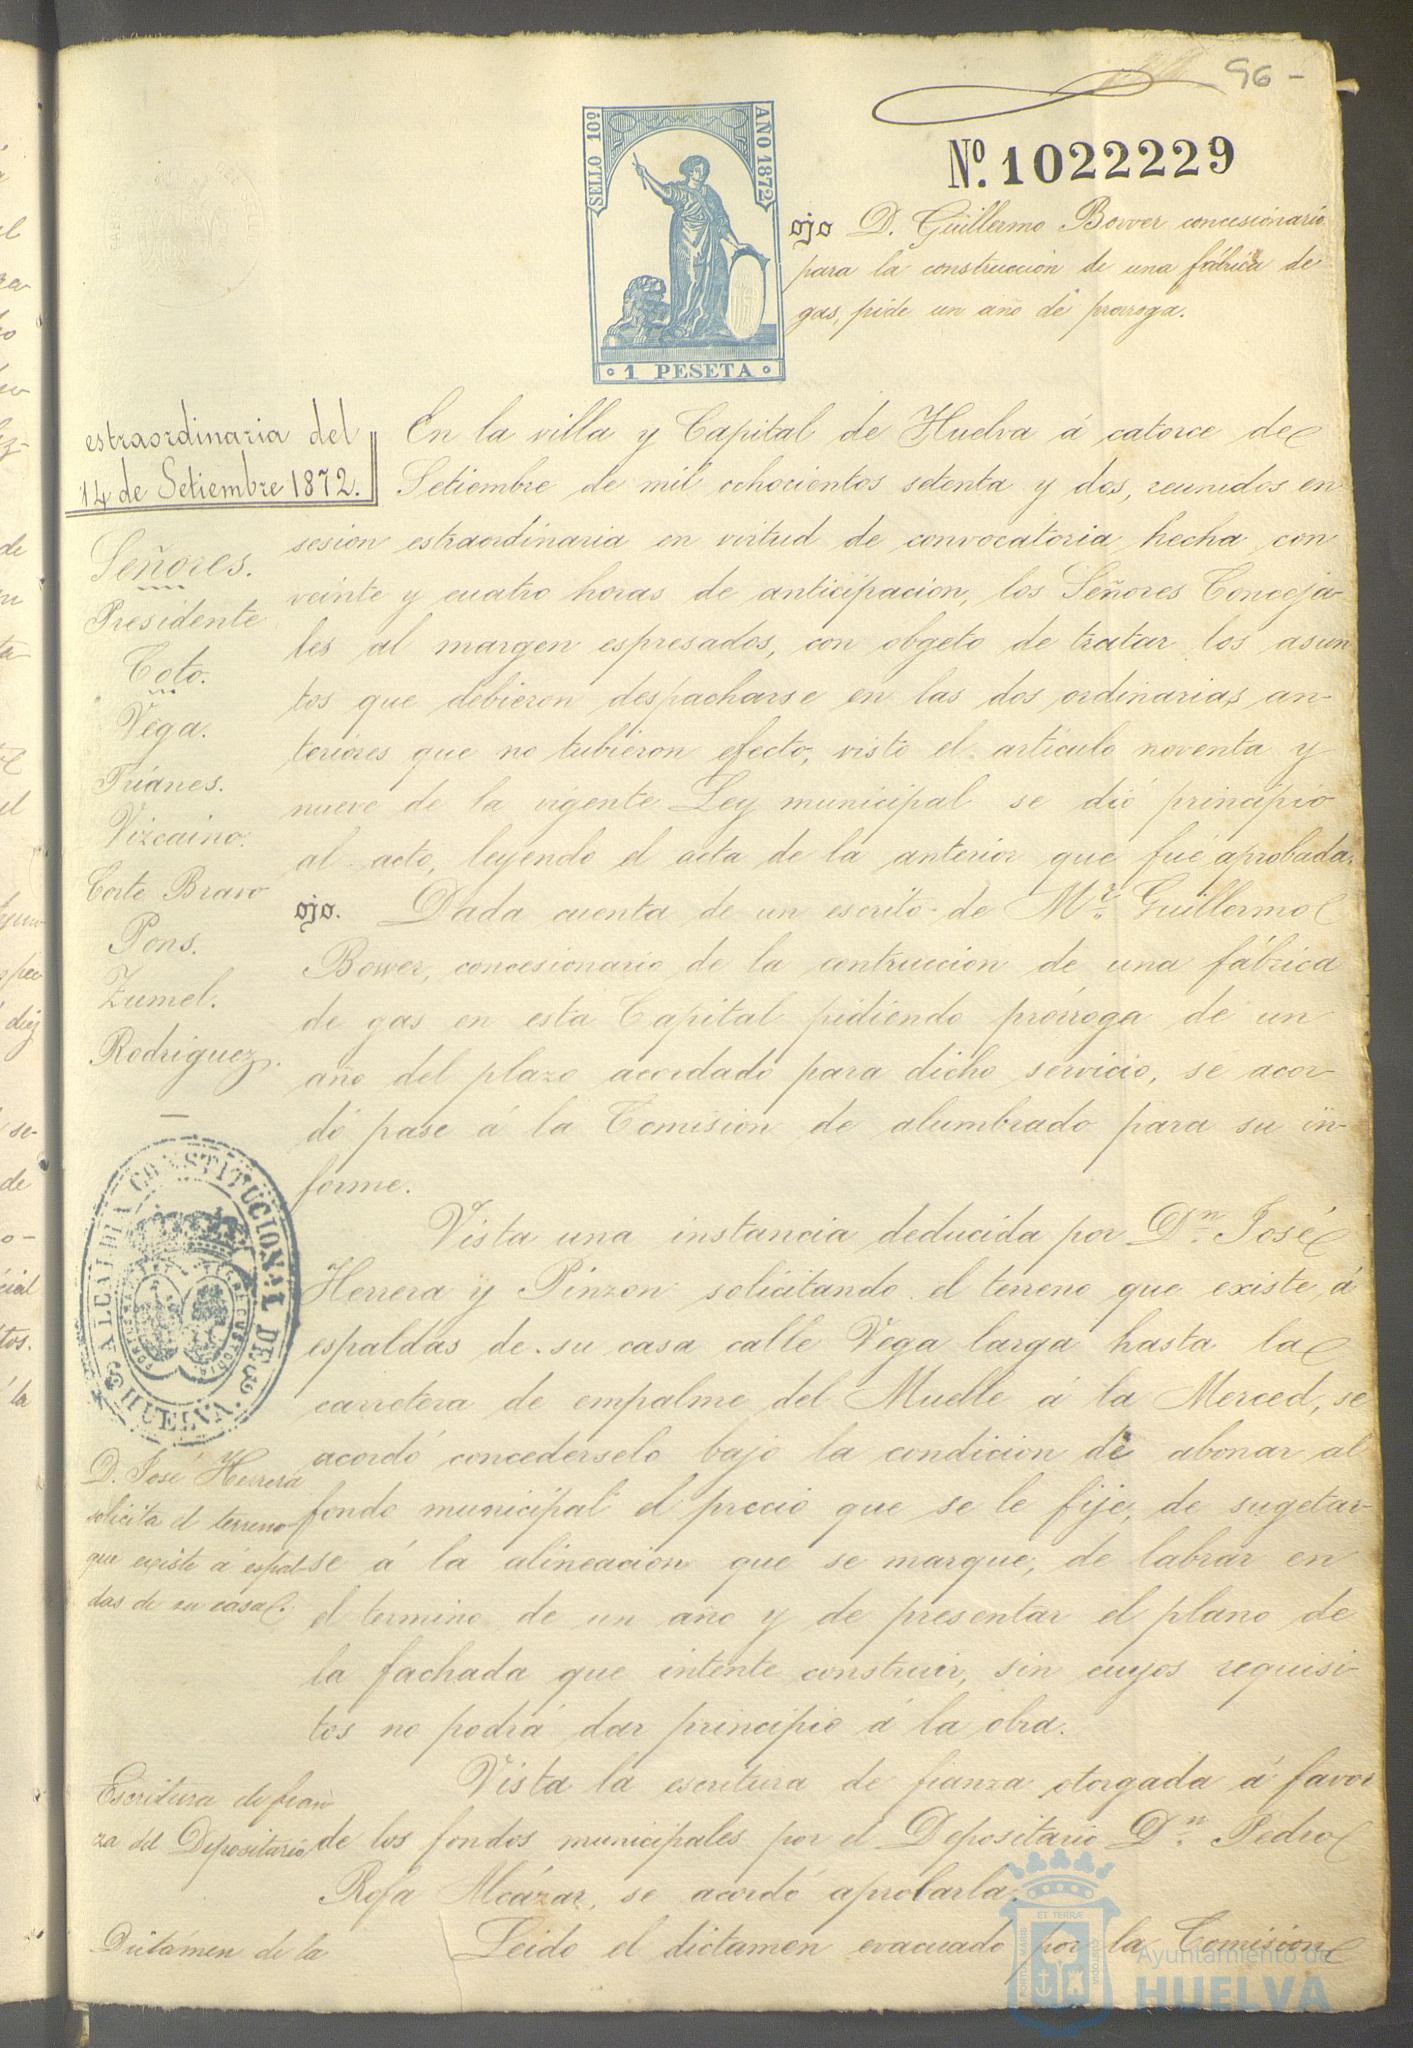 96-
SELLO 10º
AÑO 1872
1 PESETA
Nº. 1022229
ojo D. Guillermo Bower concesionario
para la construccion de una fábrica de
gas, pide un año de prorroga.
estraordinaria del
14 de Setiembre 1872.
Señores.
Presidente
Coto.
Vega.
Trianes.
Vizcaino.
Corte Bravo
Pons.
Zumel.
Rodriguez.
En la villa y Capital de Huelva á catorce de
Setiembre de mil ochocientos setenta y dos, reunidos en
sesion estraordinaria en virtud de convocatoria hecha con
veinte y cuatro horas de anticipacion, los Señores Conceja-
les al margen espresados, con obgeto de tratar los asun
tos que debieron despacharse en las dos ordinarias an-
teriores que no tubieron efecto, visto el articulo noventa y
nueve de la vigente Ley municipal se dió principio
al acto, leyendo el acta de la anterior que fué aprobada.
ojo. Dada cuenta de un escrito de Mr. Guillermo
Bower, concesionario de la contruccion de una fábrica
de gas en esta Capital pidiendo prórroga de un
año del plazo acordado para dicho servicio, se acor-
dó pase á la Comision de alumbrado para su in-
forme.
ALCALDIA CONSTITUCIONAL DE
HUELVA
Vista una instancia deducida por Dn. José
Herrera y Pinzon solicitando el terreno que existe á
espaldas de su casa calle Vega larga hasta la
carretera de empalme del Muelle á la Merced, se
acordó concederselo bajo la condicion de abonar al
fondo municipal el precio que se le fije, de sugetar-
se á la alineacion que se marque, de labrar en
el termino de un año y de presentar el plano de
la fachada que intente construir, sin cuyos requisi-
tos no podrá dar principio á la obra.
D. José Herrera
solicita el terreno
que existe á espal-
das de su casa.
Vista la escritura de fianza otorgada á favor
de los fondos municipales por el Depositario Dn. Pedro
Rofa Alcázar, se acordó aprobarla.
Escritura de fian
za del Depositario
Leido el dictamen evacuado por la Comision
Dictámen de la
PORTUS MARIS
ET TERRAE
CUSTODIA
Ayuntamiento de
HUELVA